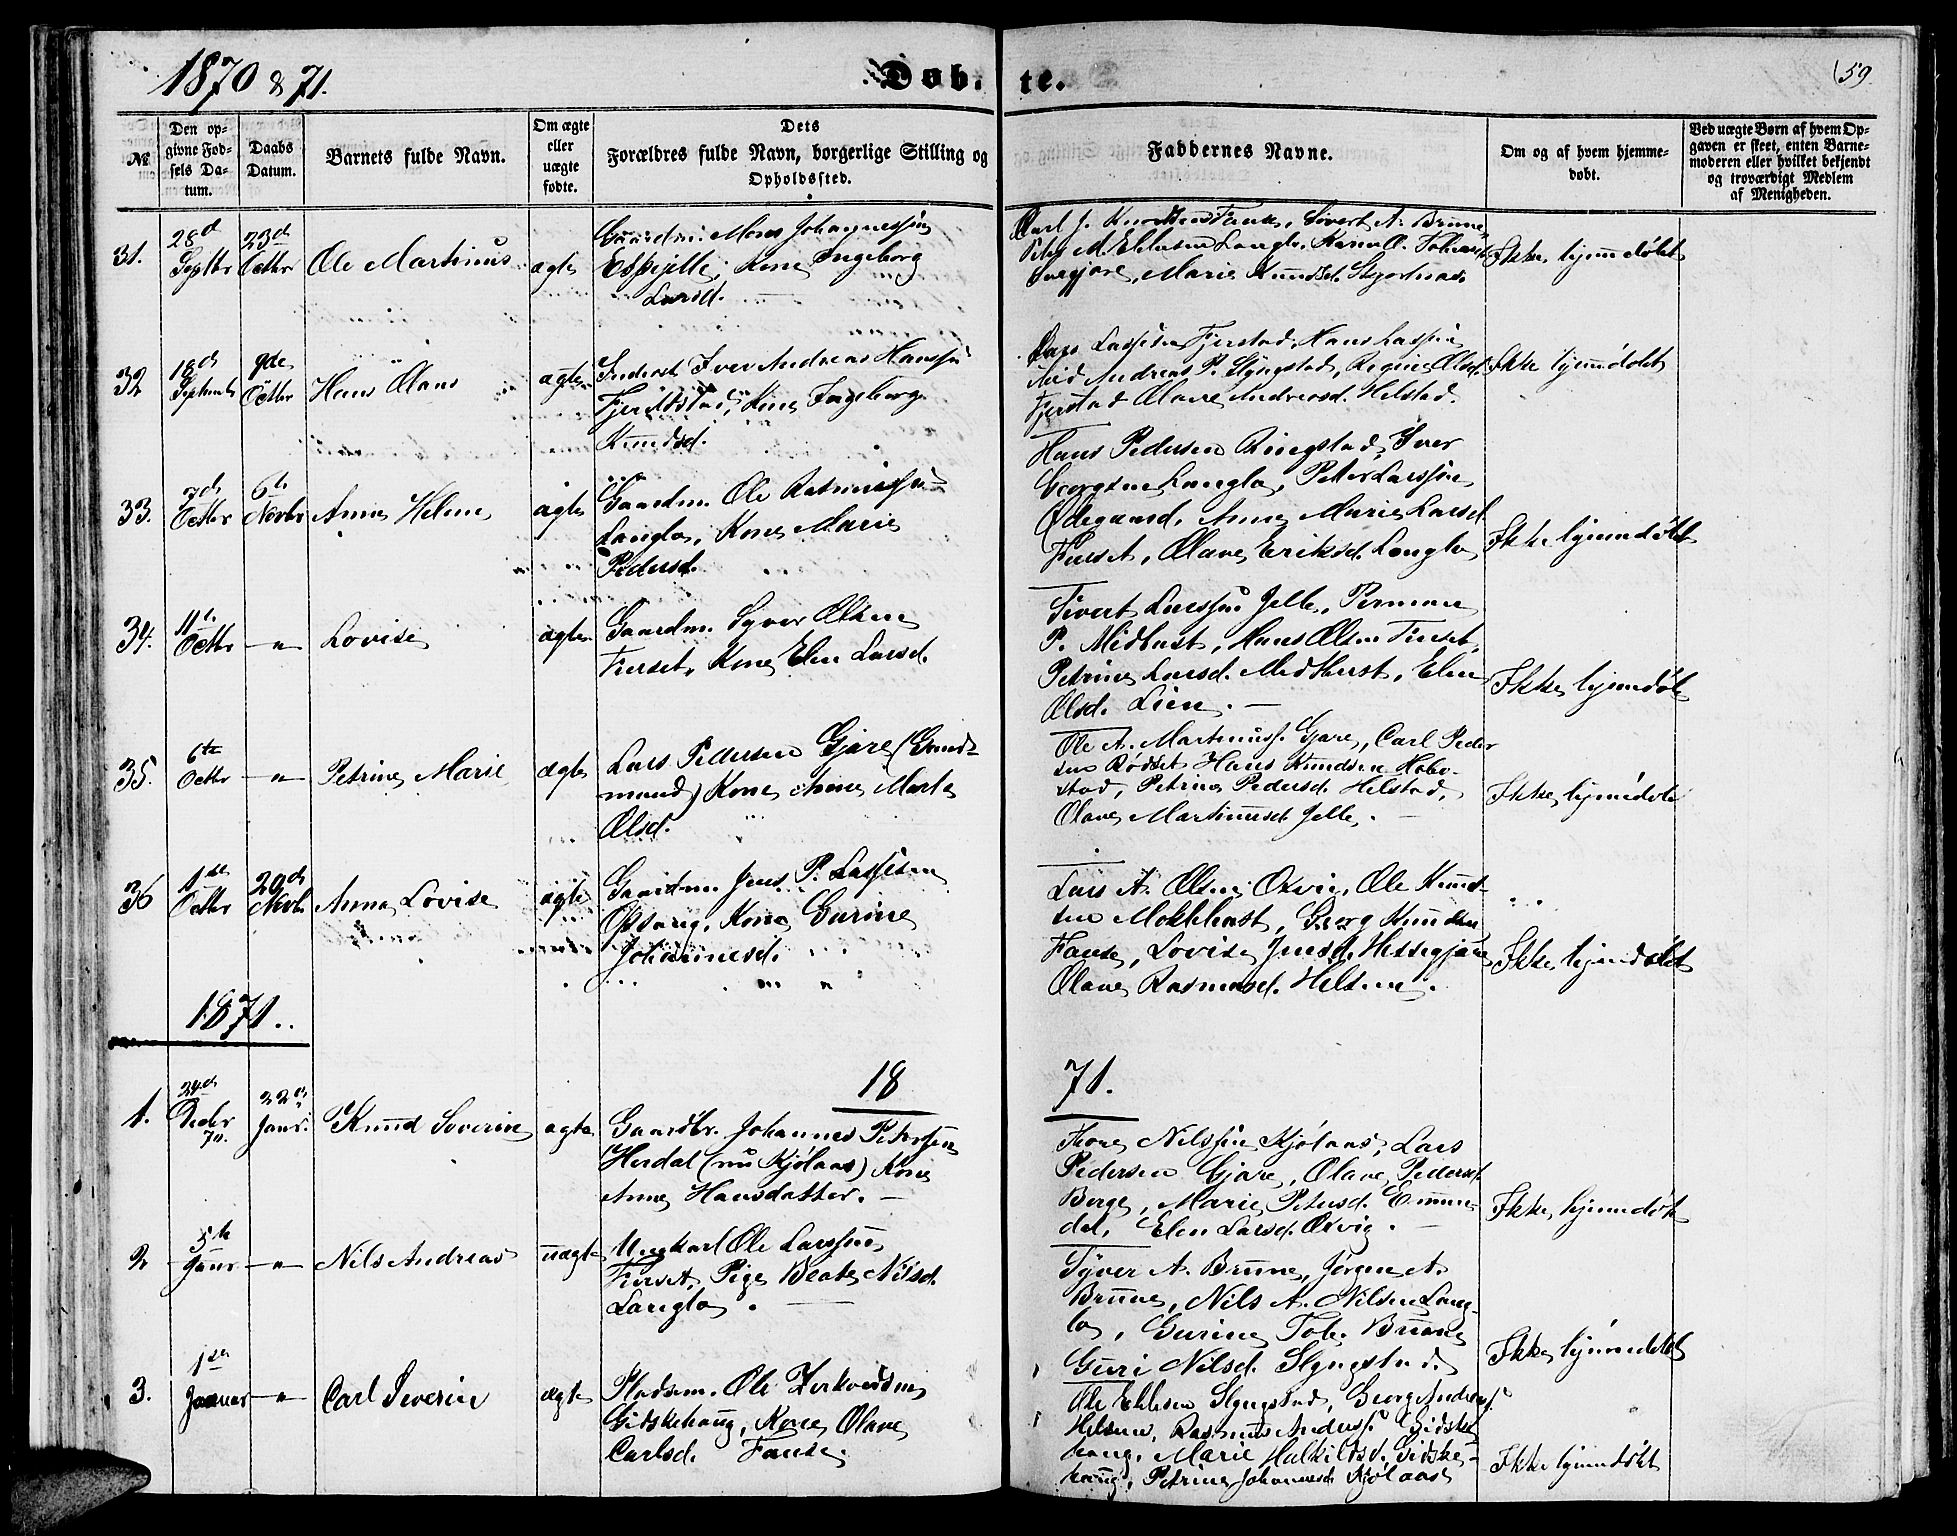 1870 & 71.
Døb. te.
59
№
Den opgivne Fødsels Datum.
Daabs Datum.
Barnets fulde Navn.
Om ægte eller uægte fødte.
Dets Forældres fulde Navn, borgerlige Stilling og Opholdssted.
Faddernes Navne.
Om og af hvem hjemmedøbt.
Ved uægte Børn af hvem Opgaven er skeet, enten Barnemoderen eller hvilket bekjendt og troværdigt Medlem af Menigheden.
31.
28d Septbr
23d Octbr
Ole Martinus
ægte
Gaardm. Mons Johannessen
Kone Ingeborg
Larsd.
Carl J. Knudsen Fause, Sivert A. Brune
Marie Knudsd.
Ikke hjemdøbt
32
18d
9de Octbr
Hans Olaus
ægte
Inderst Iver Andreas Hanssen
Fjeldstad, Kone Ingeborg
Knudsd.
Lars Larssen Fjerstad, Hans Larssen
Andreas P. Slyngstad, Regine Olsd.
Fjerstad Olave Andreasd. Helstad.
Ikke hjemdøbt
33.
2d Octbr
6te Novbr
Anne Helene
ægte
Gaardm. Ole Rasmussen
Langlo, Kone Marie
Pedersd.
Hans Pedersen Ringstad, Iver
Georgsen Langlo, Peter Larssen
Ødegaard, Anne Marie Larsd.
Furset, Olave Eriksd. Langlo
Ikke hjemdøbt
34.
11te Octbr
-"-
Lovise
ægte
Gaardm. Syver Olsen
Furset, Kone Elen Larsd.
Sivert Larssen Jelle,
P. Midhust, Hans Olsen Furset,
Petrine Larsd. Midthust, Elen
Olsd. Lien. —
Ikke hjemdøbt
35.
6te Octbr
-"-
Petrine Marie
ægte
Lars Pedersen Gjære (Gaard-
mand) Kone Anne Marte
Olsd.
Ole A. Martinuss. Gjære, Carl Peder
sen Rødset Hans Knudsen Hove-
stad, Petrine Pedersd. Helstad,
Olave Martinusd. Jelle. —
Ikke hjemdøbt
36
1ste Octbr
20d Novb.
Anna Lovise
ægte
Gaardm. Jens P. Larssen
Kone Gurine
Johannesd.
Lars A. Olsen Oxvig, Ole Knud-
sen Mokhust, Georg Knudsen
Fause, Lovise Jensd. Hessegjære
Olave Rasmusd. Helsem.
Ikke hjemdøbt
1871..
18 71.
1.
24d Decbr 70.
22d Janr.
Knud Severin
ægte
Gaardbr. Johannes Peterssen
Herdal (nu Kjølaas) Kone
Anne Hansdatter. —
Tore Nilssen Kjølaas, Lars
Pedersen Gjære, Olave Pedersd.
Berge, Marie Petersd. Emmer-
dal, Elen Larsd. Oxvig. —
Ikke hjemdøbt
2
5te Janr
-"-
Nils Andreas
uægte
Ungkarl Ole Larssen
Furset, Pige Beate Nilsd.
Langlo. —
Syver A. Brune, Jørgen A.
Brune, Nils A. Nilsen Lang-
lo, Gurine Tob. Brune
Guri Nilsd. Slyngstad.
Ikke hjemdøbt
3.
1ste Januar
-"-
Carl Severin
ægte
Pladsm. Ole
Gidskehaug, Kone Olave
Carlsd. Fause.
Ole Ellesen Slyngstad, Georg Andreass.
Helsem, Rasmus Anderss. Gidske
haug, Marie Halkildsd. Gidske-
haug, Petrine Johannesd. Kjølaas
Ikke hjemdøbt